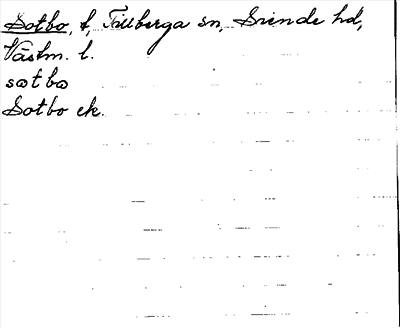 Sotbo, t, Tillberga sn, Siende hd,
Västm. l.
sωtbω
Sotbo ek.